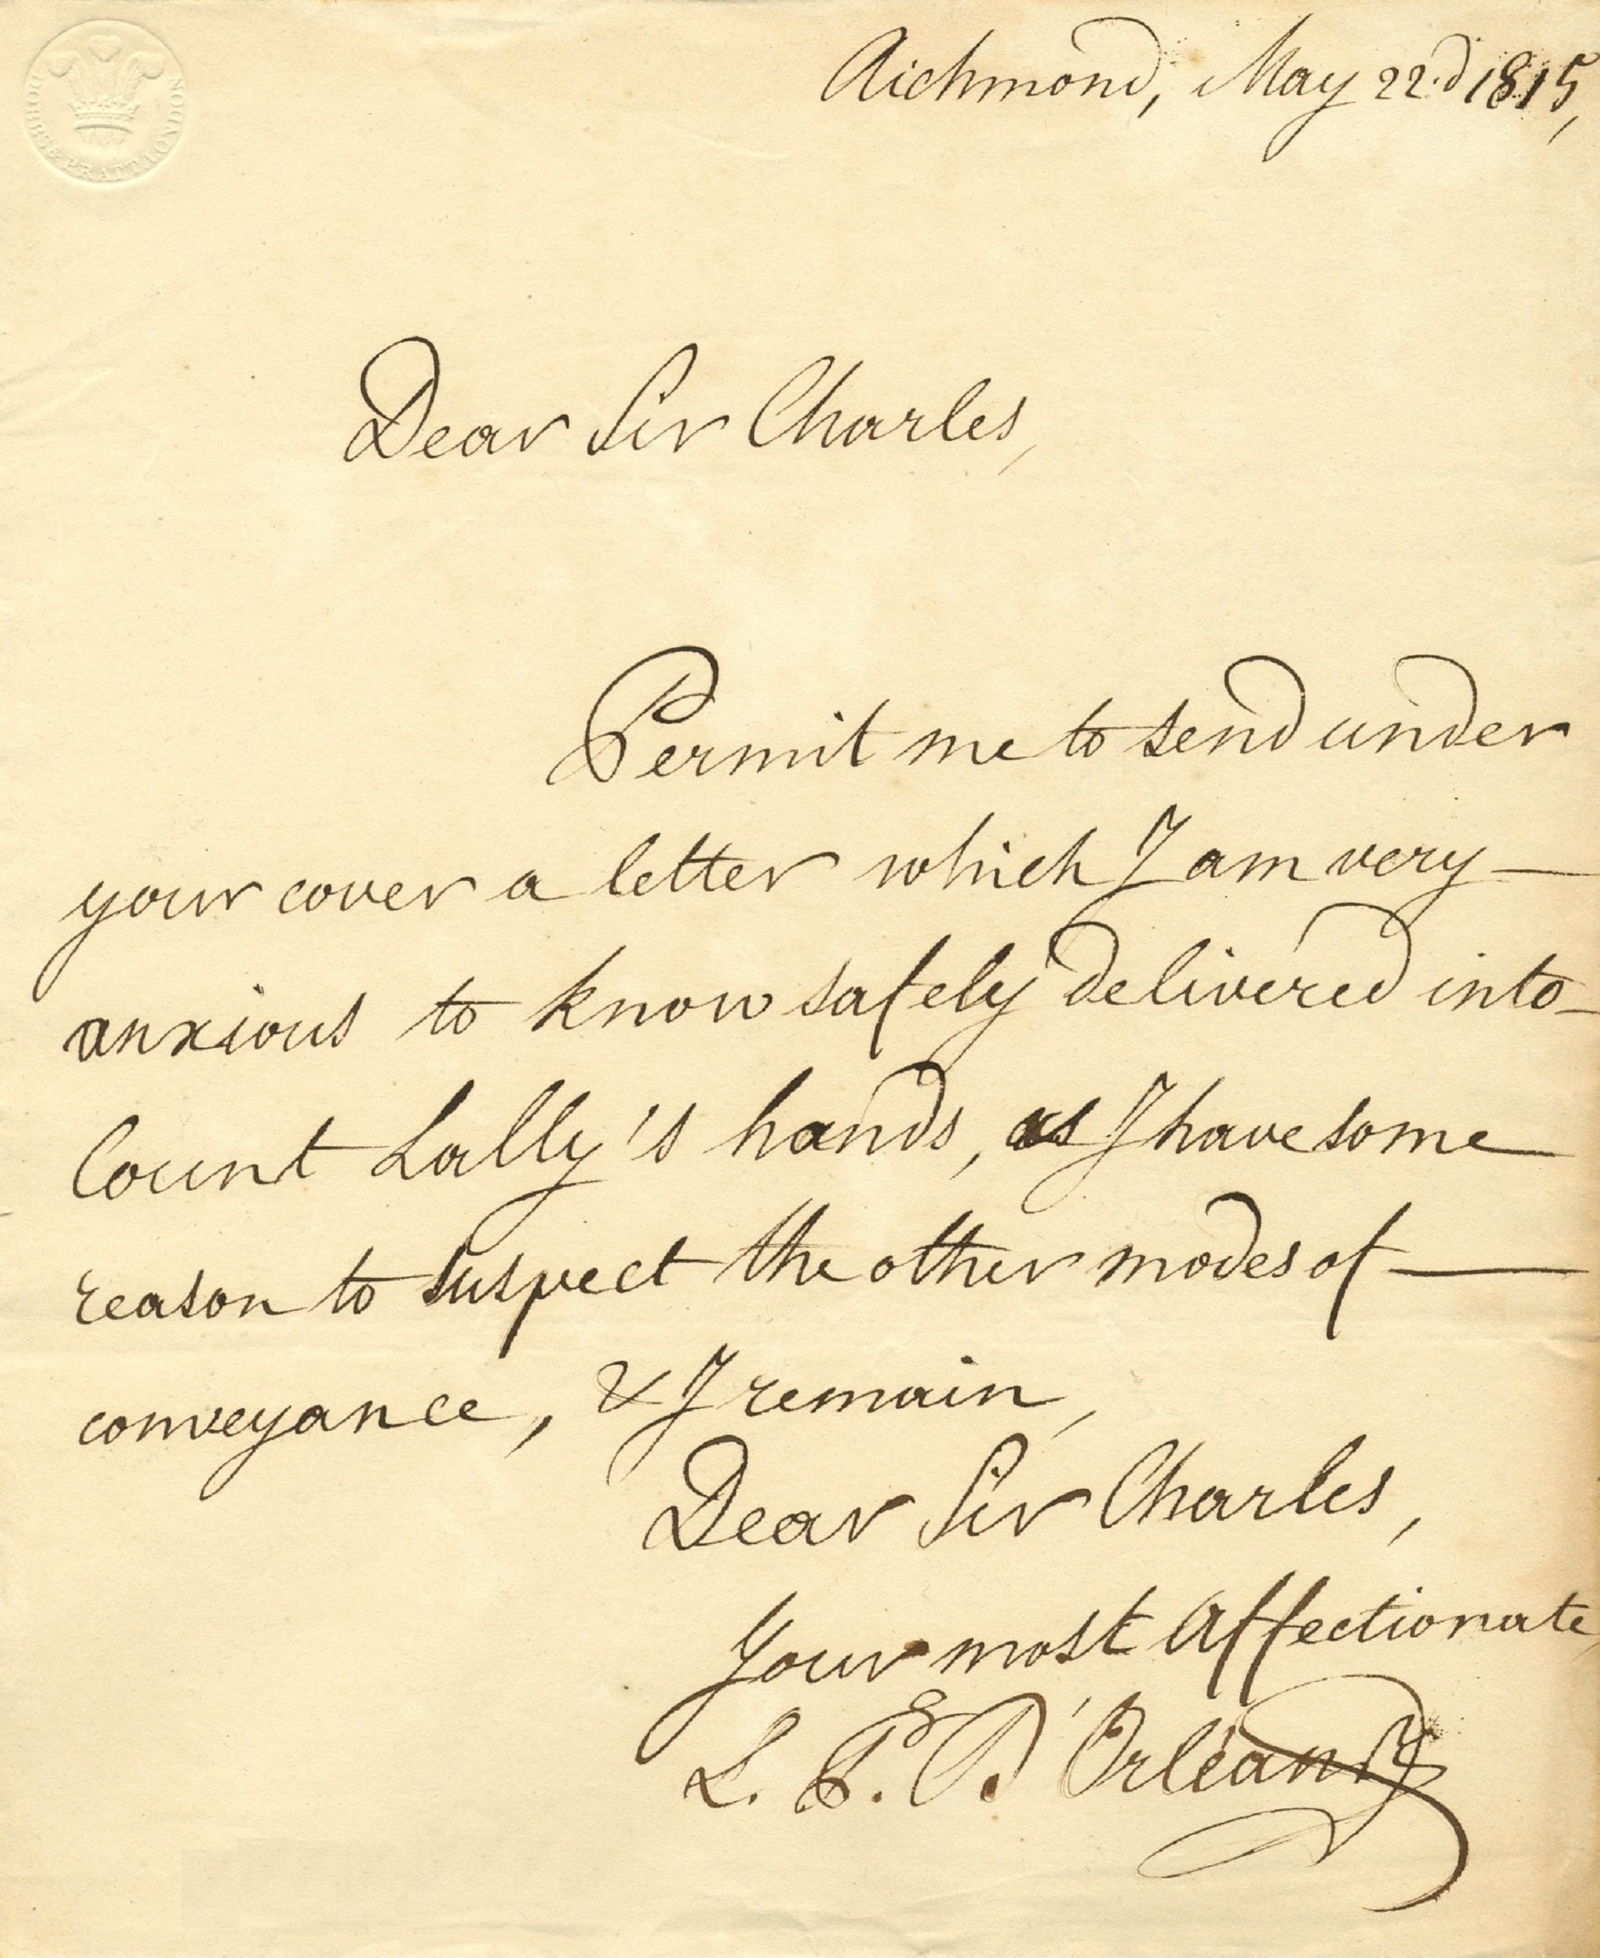 DOBBS & PRATT LONDON
Richmond, May 22.d 1815,
Dear Sir Charles,
Permit me to send under
your cover a letter which I am very —
anxious to know safely delivered into —
Count Lally's hands, as I have some
reason to suspect the other modes of —
conveyance, & I remain,
Dear Sir Charles,
Your most affectionate,
L. P. D'Orléans